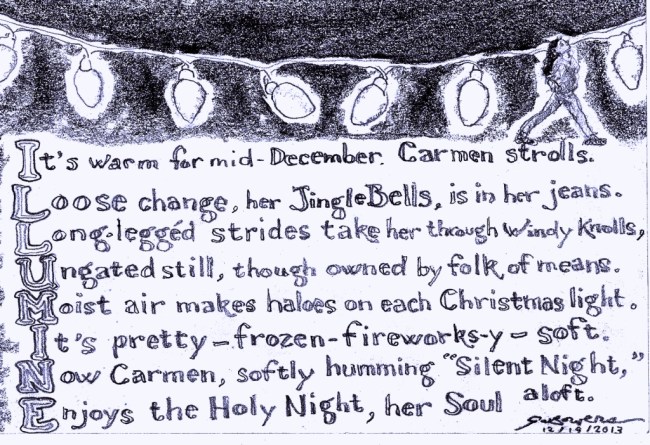 It's warm for mid-December. Carmen strolls.
Loose change, her JingleBells, is in her jeans.
Long-leggéd strides take her through Windy Knolls,
Ungated still, though owned by folk of means.
Moist air makes haloes on each Christmas light.
It's pretty-frozen-fireworks-y-soft.
Now Carmen, softly humming "Silent Night,"
Enjoys the Holy Night, her Soul aloft.
12/19/2013